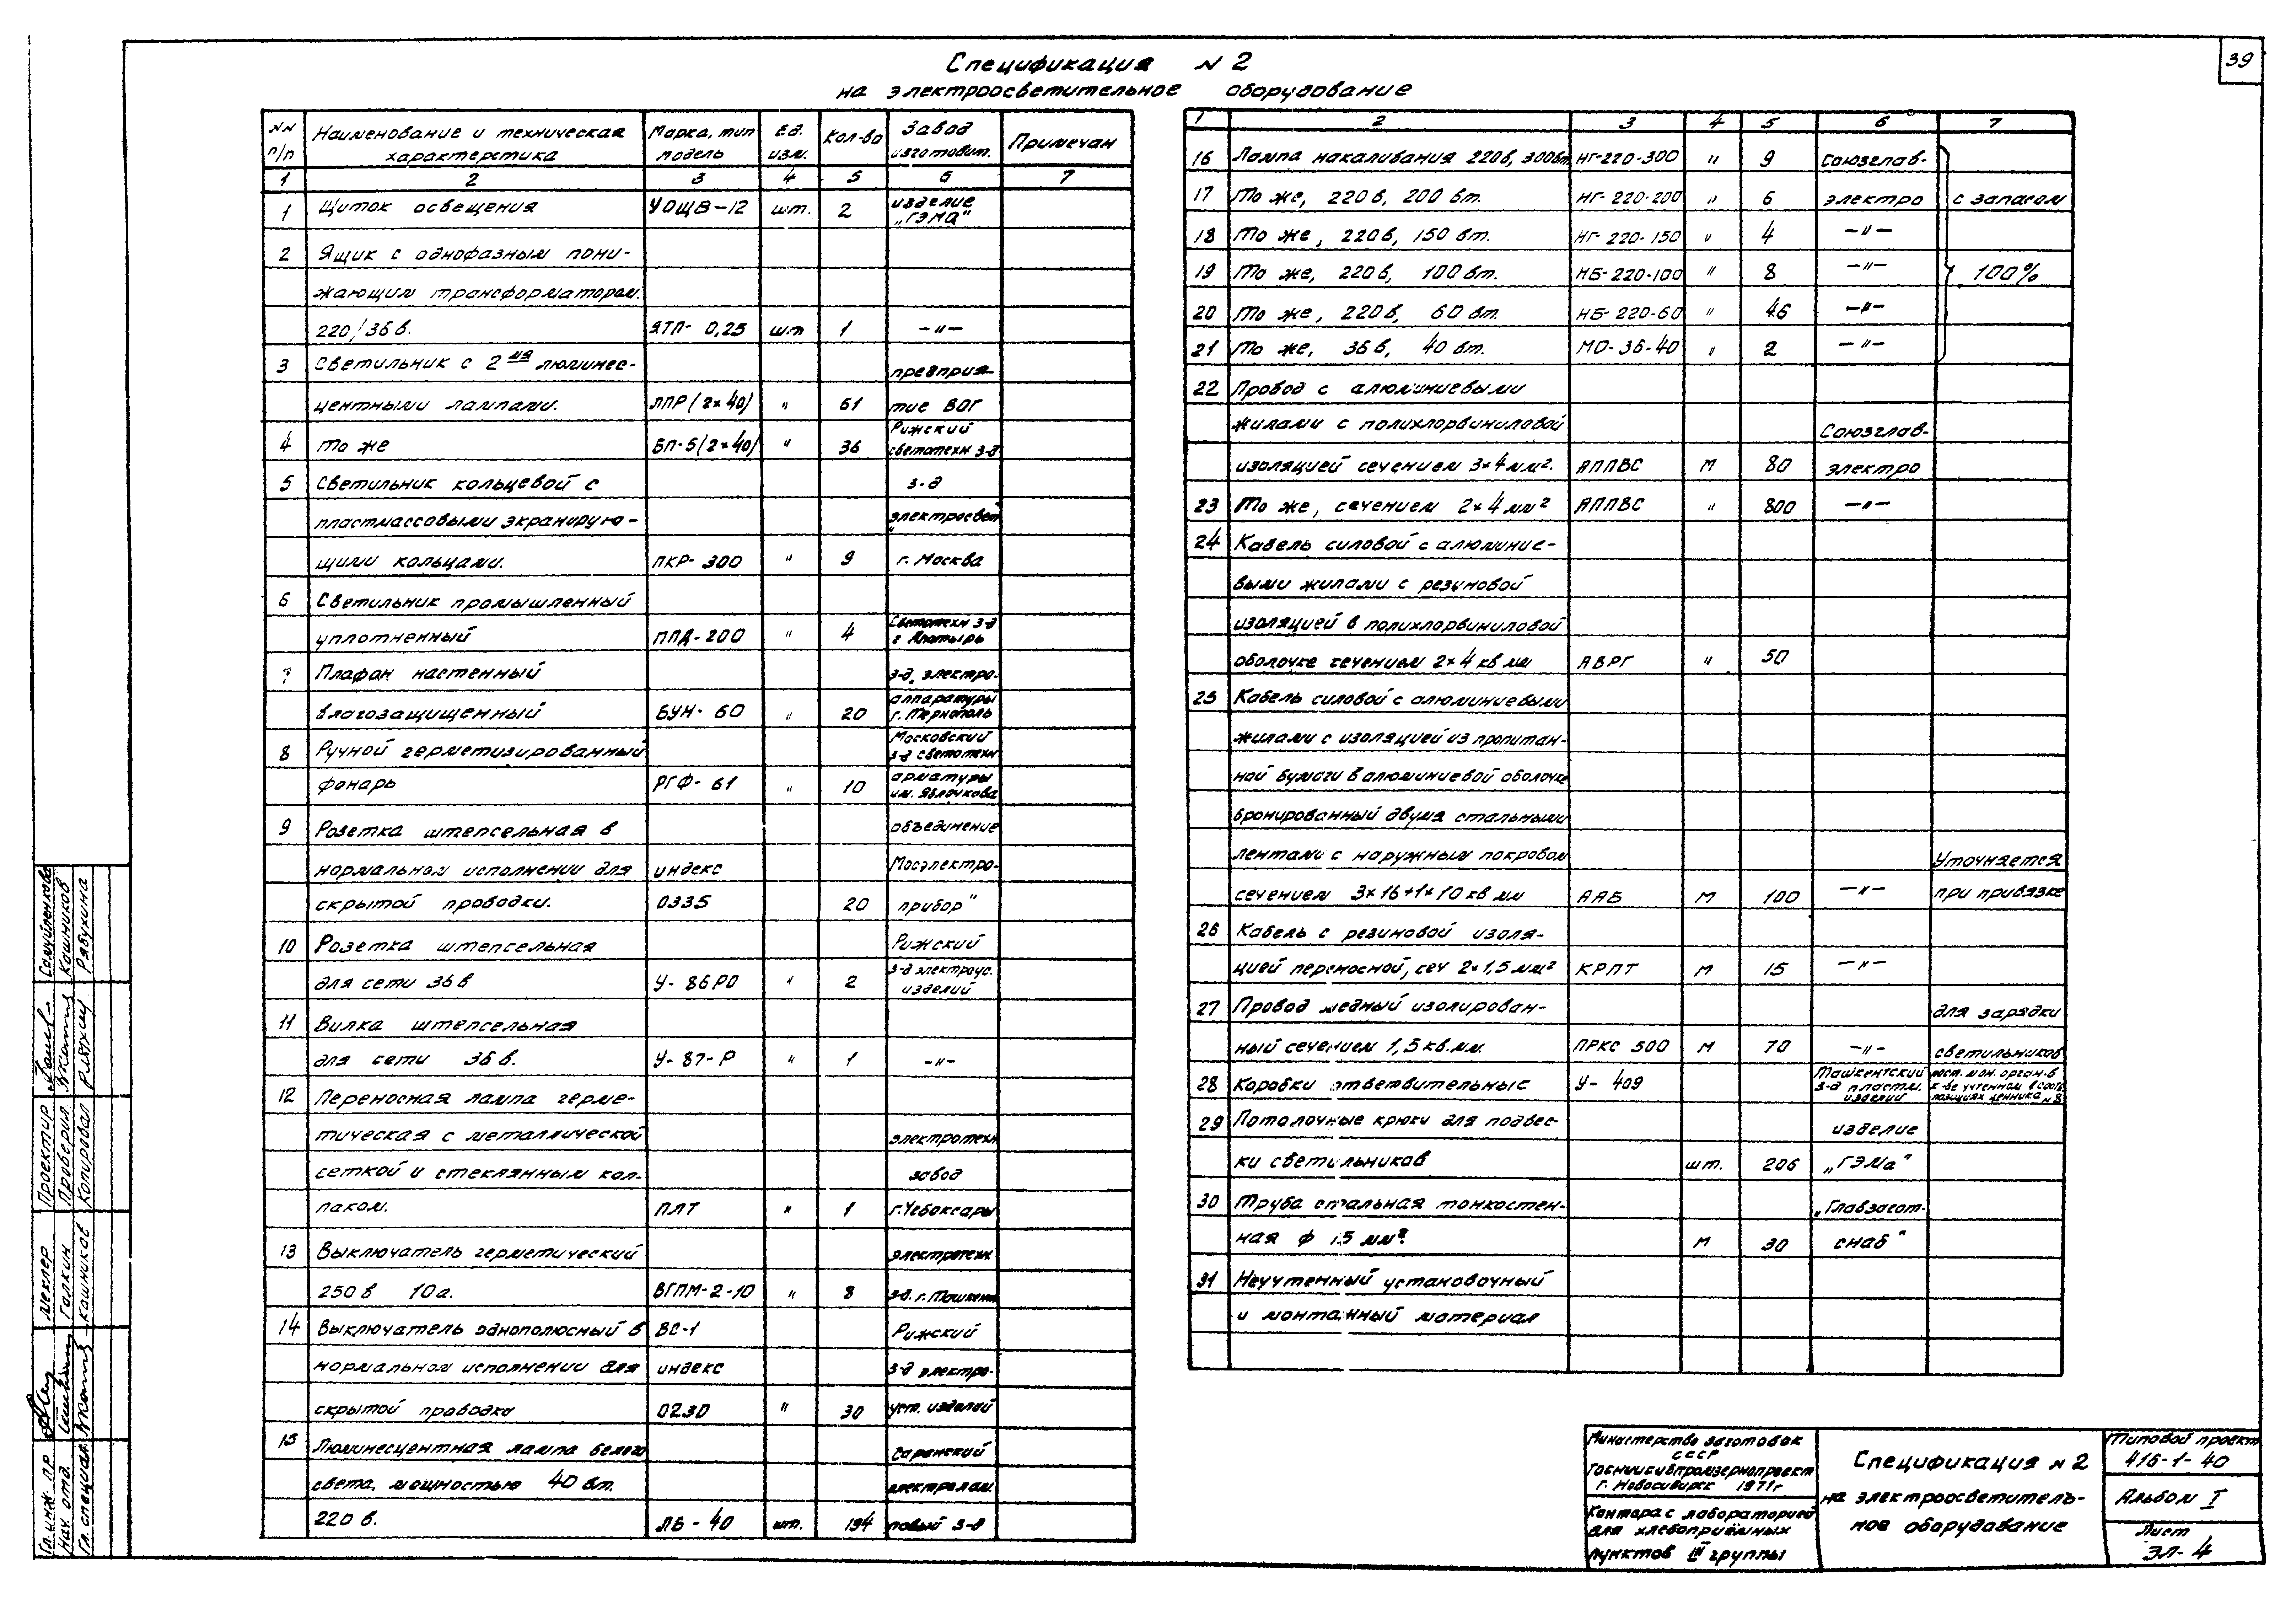 39
Спецификация N 2
на электроосветительное оборудование
NN п/п Наименование и техническая характерстика Марка, тип модель Ед. изм. Кол-во Завод изготовит. Примечан
1 2 3 4 5 6 7
1 Щиток освещения УОЩВ-12 шт. 2 изделие „ГЭМа"
2 Ящик с однофазным пони-
жающим трансформатором.
220/36в. ЯТП- 0,25 шт 1 —"—
3 Светильник с 2мя люминес- предприя-
центными лампами. ЛПР (2×40) " 61 тие ВОГ
4 то же БЛ-5(2×40) " 36 Рижский светотехн з-д
5 Светильник кольцевой с з-д
пластмассовыми экранирую- „электросвет
щими кольцами. ПКР- 300 " 9 г. Москва
6 Светильник промышленный
уплотненный ППД-200 " 4 Светотехн з-д г Алатырь
7 Плафон настенный з-д. электро-
влагозащищенный БУН- 60 " 20 аппаратуры г. Тернополь
8 Ручной герметизированный Московский з-д светотехн
фонарь РГФ- 61 " 10 арматуры им. Яблочкова
9 Розетка штепсельная в объединение
нормальном исполнении для индекс Мосэлектро-
скрытой проводки. 0335 20 прибор"
10 Розетка штепсельная Рижский
для сети 36в У- 86РО " 2 з-д электроус. изделий
11 Вилка штепсельная
для сети 36в. У- 87-Р " 1 —"—
12 Переносная лампа герме-
тическая с металлической электротехн
сеткой и стеклянным кол- завод
паком. ПЛТ " 1 г.Чебоксары
13 Выключатель герметический электротехн
250в 10а. ВГПМ-2-10 " 8 з-д. г. Ташкент
14 Выключатель однополюсный в ВС-1 Рижский
нормальном исполнении для индекс з-д электро-
скрытой проводки 0230 " 30 уст. изделий
15 Люминесцентная лампа белого Саранский
света, мощностью 40 вт. электролам.
220 в. ЛБ - 40 шт. 194 повый з-д
1 2 3 4 5 6 7
16 Лампа накаливания 220в, 300вт. НГ-220-300 " 9 Союзглав-
17 То же, 220в, 200 вт. НГ-220-200 " 6 электро с запасом
18 То же, 220в, 150 вт. НГ-220-150 " 4 —"—
19 То же, 220в, 100 вт. НБ-220-100 " 8 —"— 100%
20 То же, 220в, 60 вт. НБ-220-60 " 46 —"—
21 То же, 36в, 40 вт. МО-36-40 " 2 —"—
22 Провод с алюминиевыми
жилами с полихлорвиниловой Союзглав-
изоляцией сечением 3×4мм². АППВС м 80 электро
23 То же, сечением 2×4мм² АППВС " 800 —"—
24 Кабель силовой с алюминие-
выми жилами с резиновой
изоляцией в полихлорвиниловой
оболочке сечением 2×4 кв мм АВРГ " 50
25 Кабель силовой с алюминиевыми
жилами с изоляцией из пропитан-
ной бумаги в алюминиевой оболочке
бронированный двумя стальными
лентами с наружным покровом Уточняется
сечением 3×16+1×10 кв мм ААБ м 100 —"— при привязке
26 Кабель с резиновой изоля-
цией переносной, сеч 2×1,5мм² КРПТ м 15 —"—
27 Провод медный изолирован- для зарядки
ный сечением 1,5 кв.мм. ПРКС 500 м 70 —"— светильников
28 Коробки ответвительные У- 409 Ташкентский з-д пластм. изделий пост. мон. орган. в к-ве учтенном в соотв. позициях ценника N 8
29 Потолочные крюки для подвес- изделие
ки светильников шт. 206 „ГЭМа"
30 Труба стальная тонкостен- „Главзагот-
ная ф 15 мм². м 30 снаб"
31 Неучтенный установочный
и монтажный материал
Министерство заготовок
СССР
Госниисибпромзернопроект
г. Новосибирск 1971г
Контора с лабораторией
для хлебоприёмных
пунктов III группы
Спецификация N 2
на электроосветитель-
ное оборудование
Типовой проект
416-1-40
Альбом I
Лист
ЭЛ-4
Гл. инж. пр Меклер Проектир Самуйленкова
Нач. отд. Галкин Проверил Кашников
Гл. специал. Кашников Копировал Рябухина